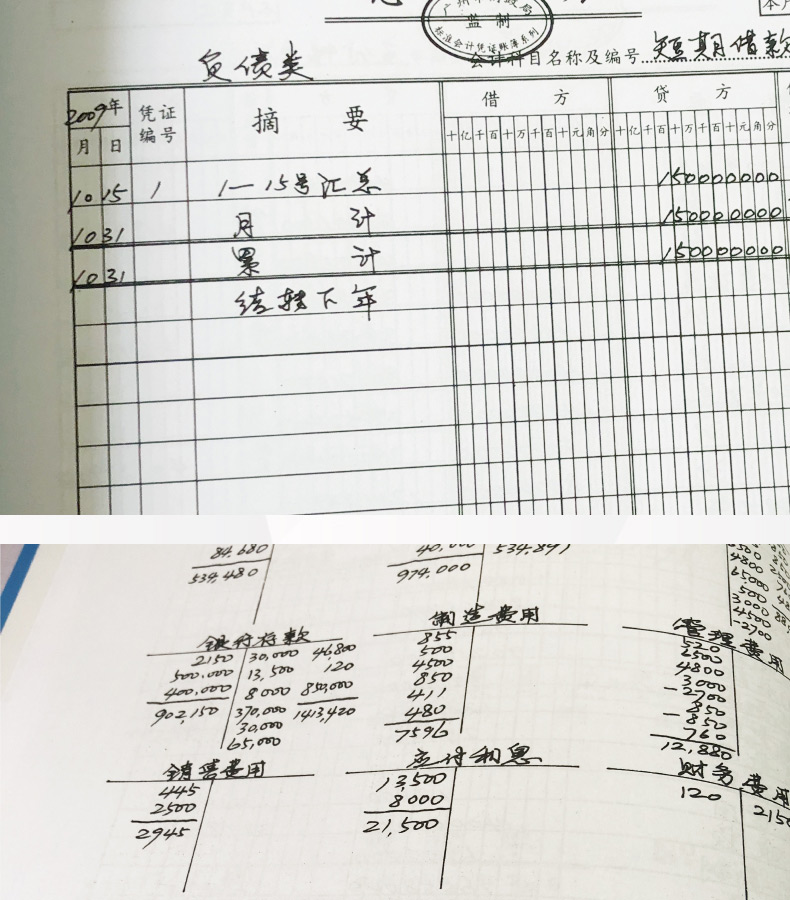 监制
标准会计凭证账簿系列
负债类
会计科目名称及编号 短期借款
2009年 凭证编号 摘 要 借 方 贷 方
月 日 十亿千百十万千百十元角分 十亿千百十万千百十元角分
10 15 1 1—15号汇总 150000000
10 31 月 计 150000000
10 31 累 计 150000000
结转下年
84,680
539,480
974,000
534,891
4800
65,000
500
3000
4500
-2700
银行存款
2150 30,000 46,800
500,000 13,500 120
400,000 8000 850,000
902,150 370,000 1413,420
30,000
65,000
制造费用
855
500
4500
850
411
480
7596
管理费用
520
6500
4800
3000
-2700
850
-850
760
12,880
销售费用
445
2500
2945
应付利息
13,500
8000
21,500
财务费用
120 2150